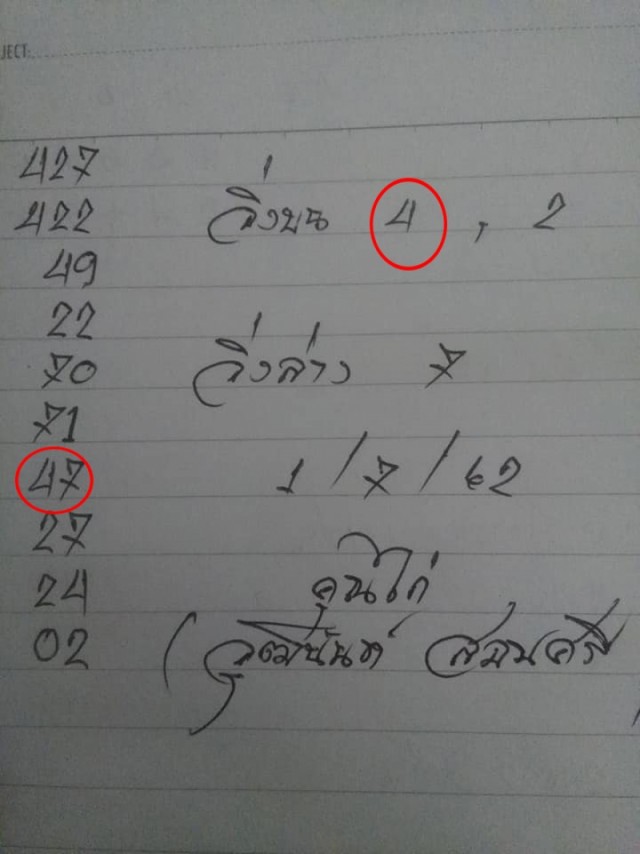 JECT:
427
422 วิ่งบน 4 , 2
49
22
70 วิ่งล่าง 7
71
47 1/7/62
27
24 คุณไก่
02 ( วุฒินันท์ สอนศรี